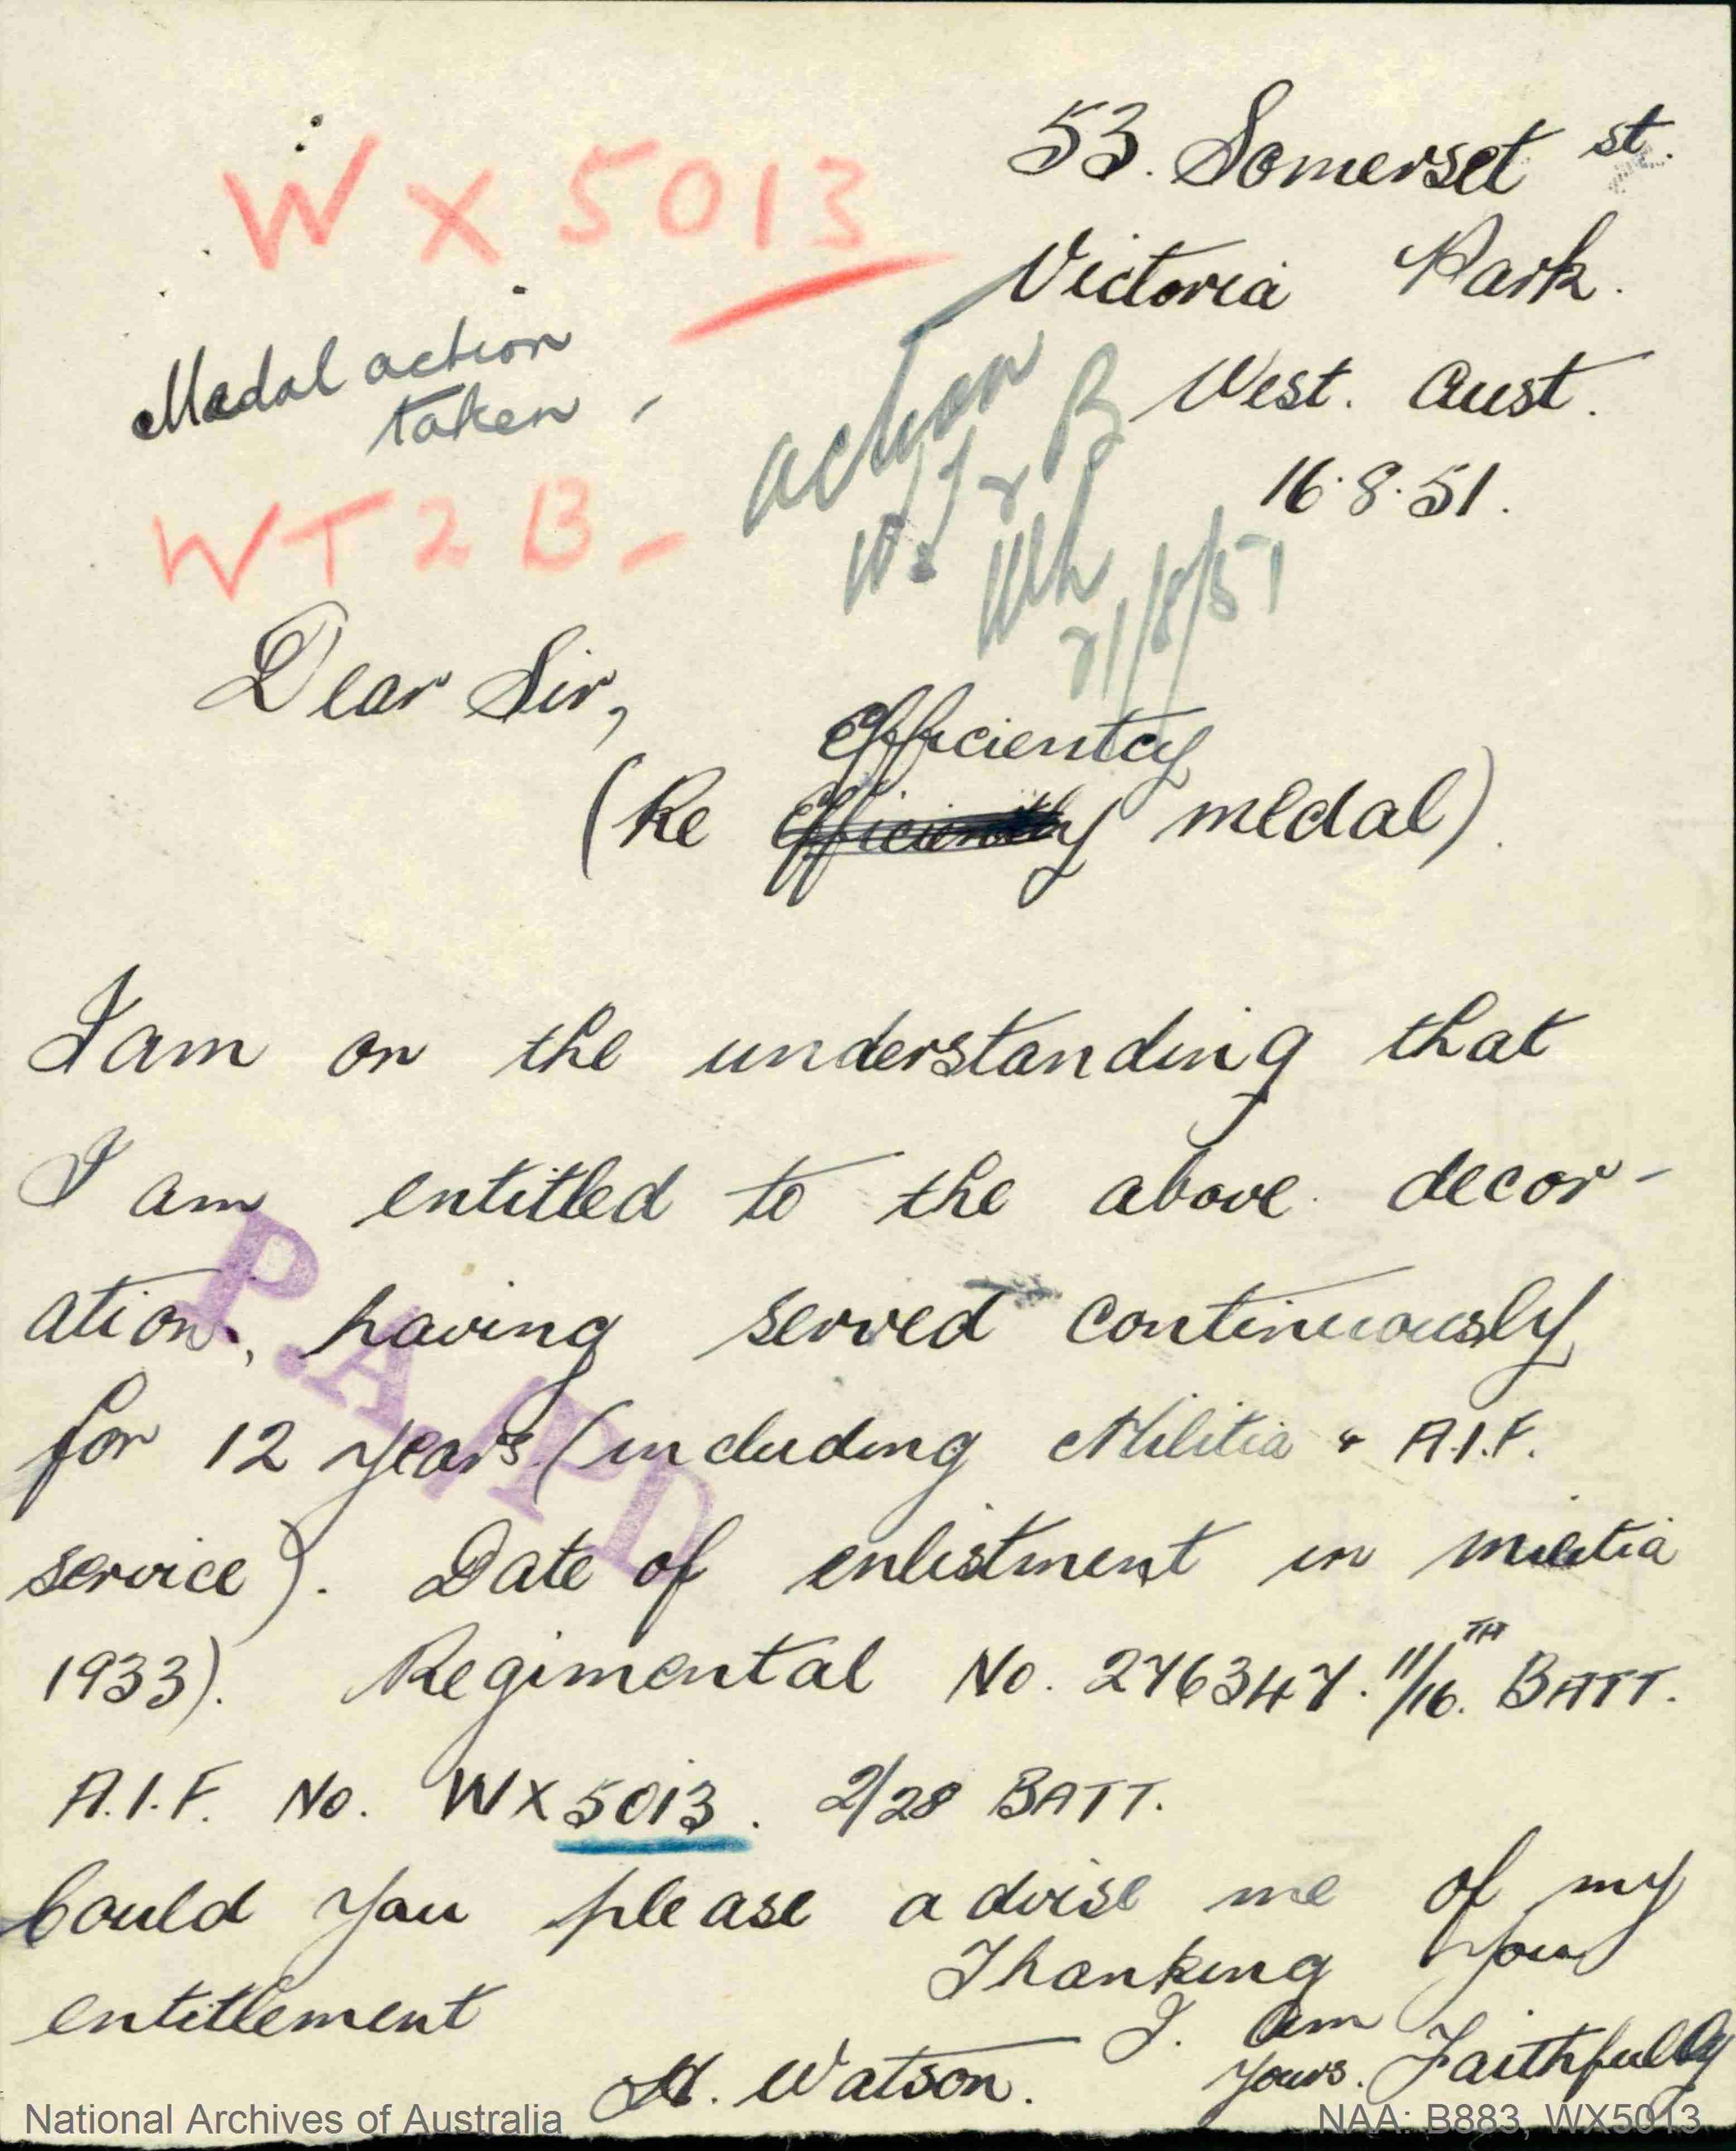 53. Somerset st.
WX5013
Victoria Park.
Medal action
taken
West. Aust.
action
16.8.51.
WT2B-
21/8/51
Dear Sir,
Efficientcy
(Re Efficiently medal).
I am on the understanding that
I am entitled to the above decor-
ation, having served continuously
for 12 years (including Militia & A.I.F.
service). Date of enlistment in militia
1933). Regimental No. 276347. 11/16TH. BATT.
A.I.F. No. WX5013. 2/28 BATT.
Could you please advise me of my
entitlement
Thanking you
I. am
Yours. Faithfully
H. Watson.
P.A./T.D
National Archives of Australia
NAA: B883, WX5013